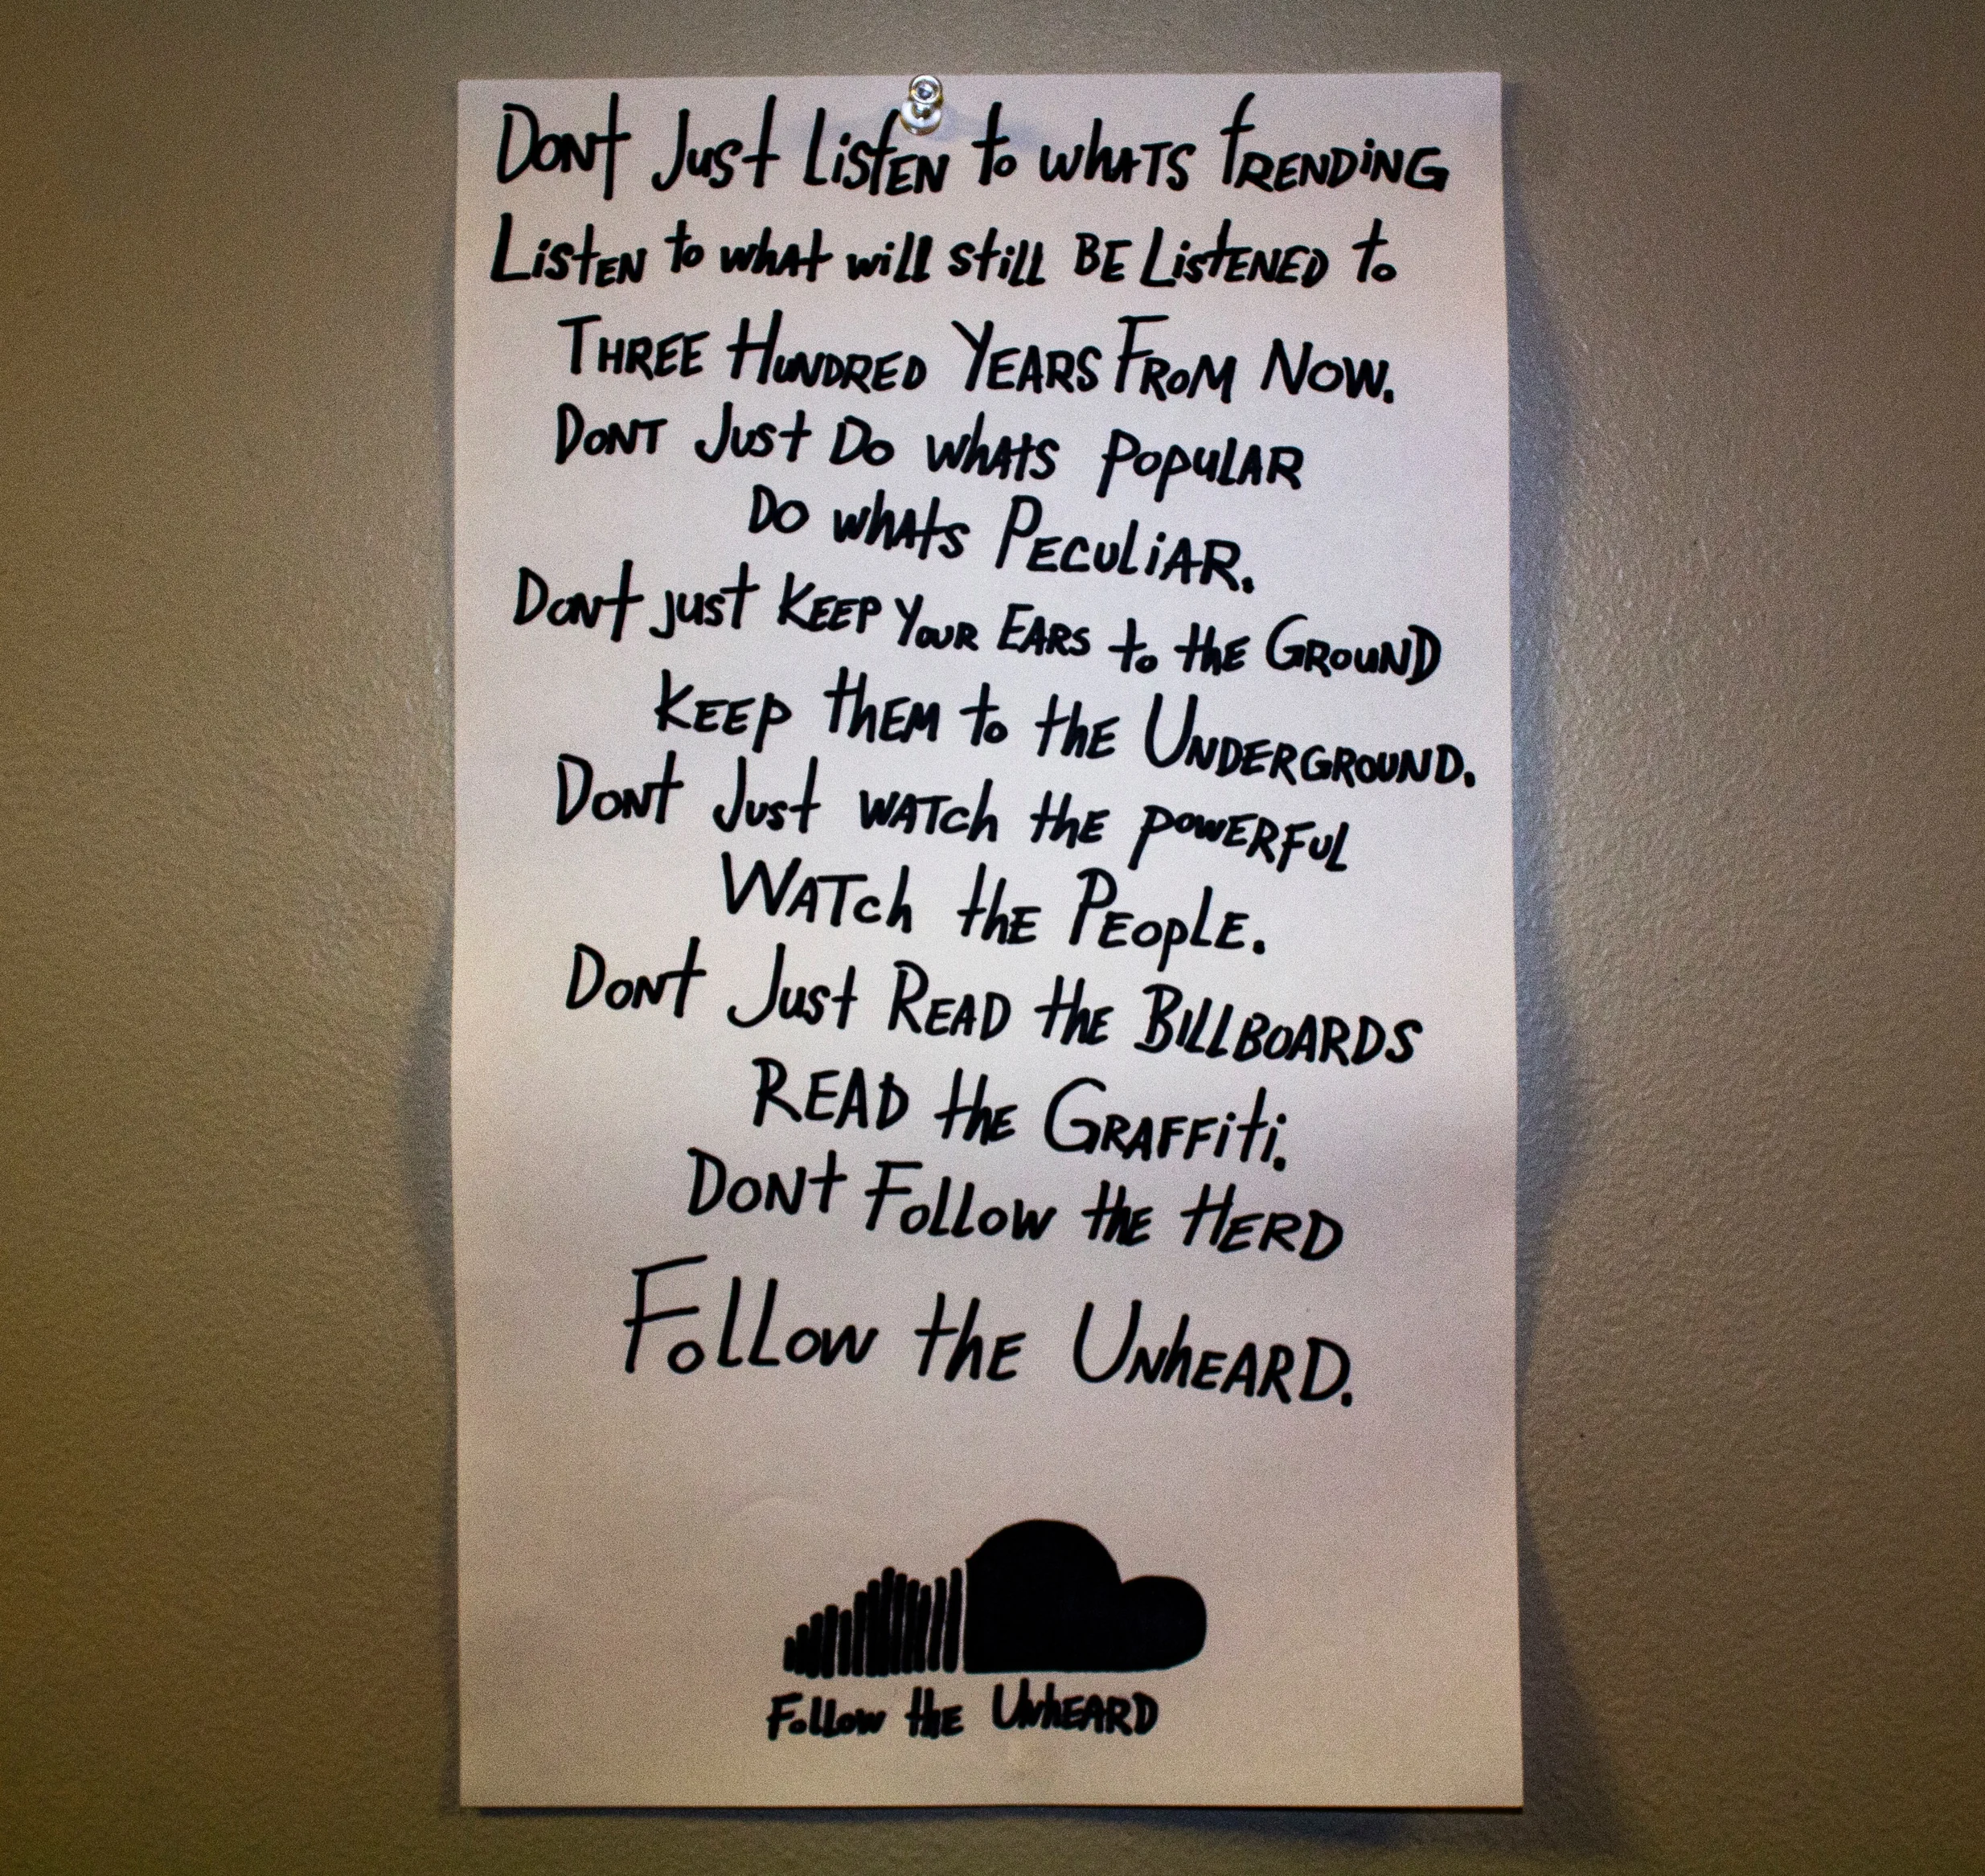 Dont Just Listen to whats trending
Listen to what will still be Listened to
Three Hundred Years From Now.
Dont Just Do whats Popular
Do whats Peculiar.
Dont just Keep Your Ears to the Ground
Keep them to the Underground.
Dont Just watch the powerful
Watch the People.
Dont Just Read the Billboards
Read the Graffiti.
Dont Follow the Herd
Follow the Unheard.
Follow the Unheard